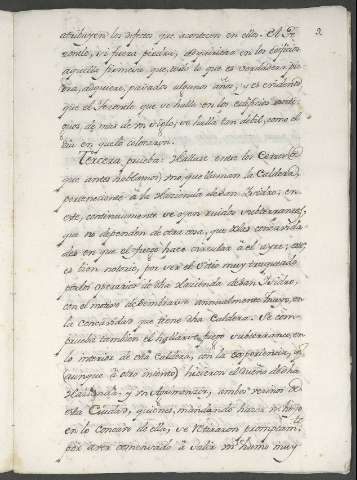 2
atribuyen los efectos que acontecen en ellos. el Te-
zontle, si fuera piedra, adquiriera en los edificios
aquella firmeza que, todo lo que es verdadera pie-
dra, adquiere, pasados algunos años; y es evidente
que el Tezontle que se halla en los edificios antig-
uos, de mas de un siglo, se halla tan debil, como el
dia en que lo colocaron.
Tercera prueba: Hallase entre los Cerros (de
que antes hablamos) uno, que llaman la Caldera,
perteneciente à la Hacienda de San Isidro; en
este, continuamente se oyen ruidos subterraneos,
que no dependen de otra cosa, que de las concavida-
des en que el fuego hace circular à el ayre; esto
es bien notorio, por ser el sitio muy traqueado
por los operarios de dha Hacienda de San Isidro,
con el motivo de sembrarse annualmente trigo, en
la concavidad que tiene dha Caldera. Se com-
prueba tambien el hallarse fuego subterraneo, en
lo interior de esta Caldera, con la experiencia, q.e
(aunque à otro intento) hicieron el Dueño de dha
Hacienda, y un Agrimensor, ambos vecinos de
esta Ciudad, quienes, mandando hacer un hoyo
en lo concavo de ella, se retiraron promptam.te
por aver comenzado à salir un humo muy